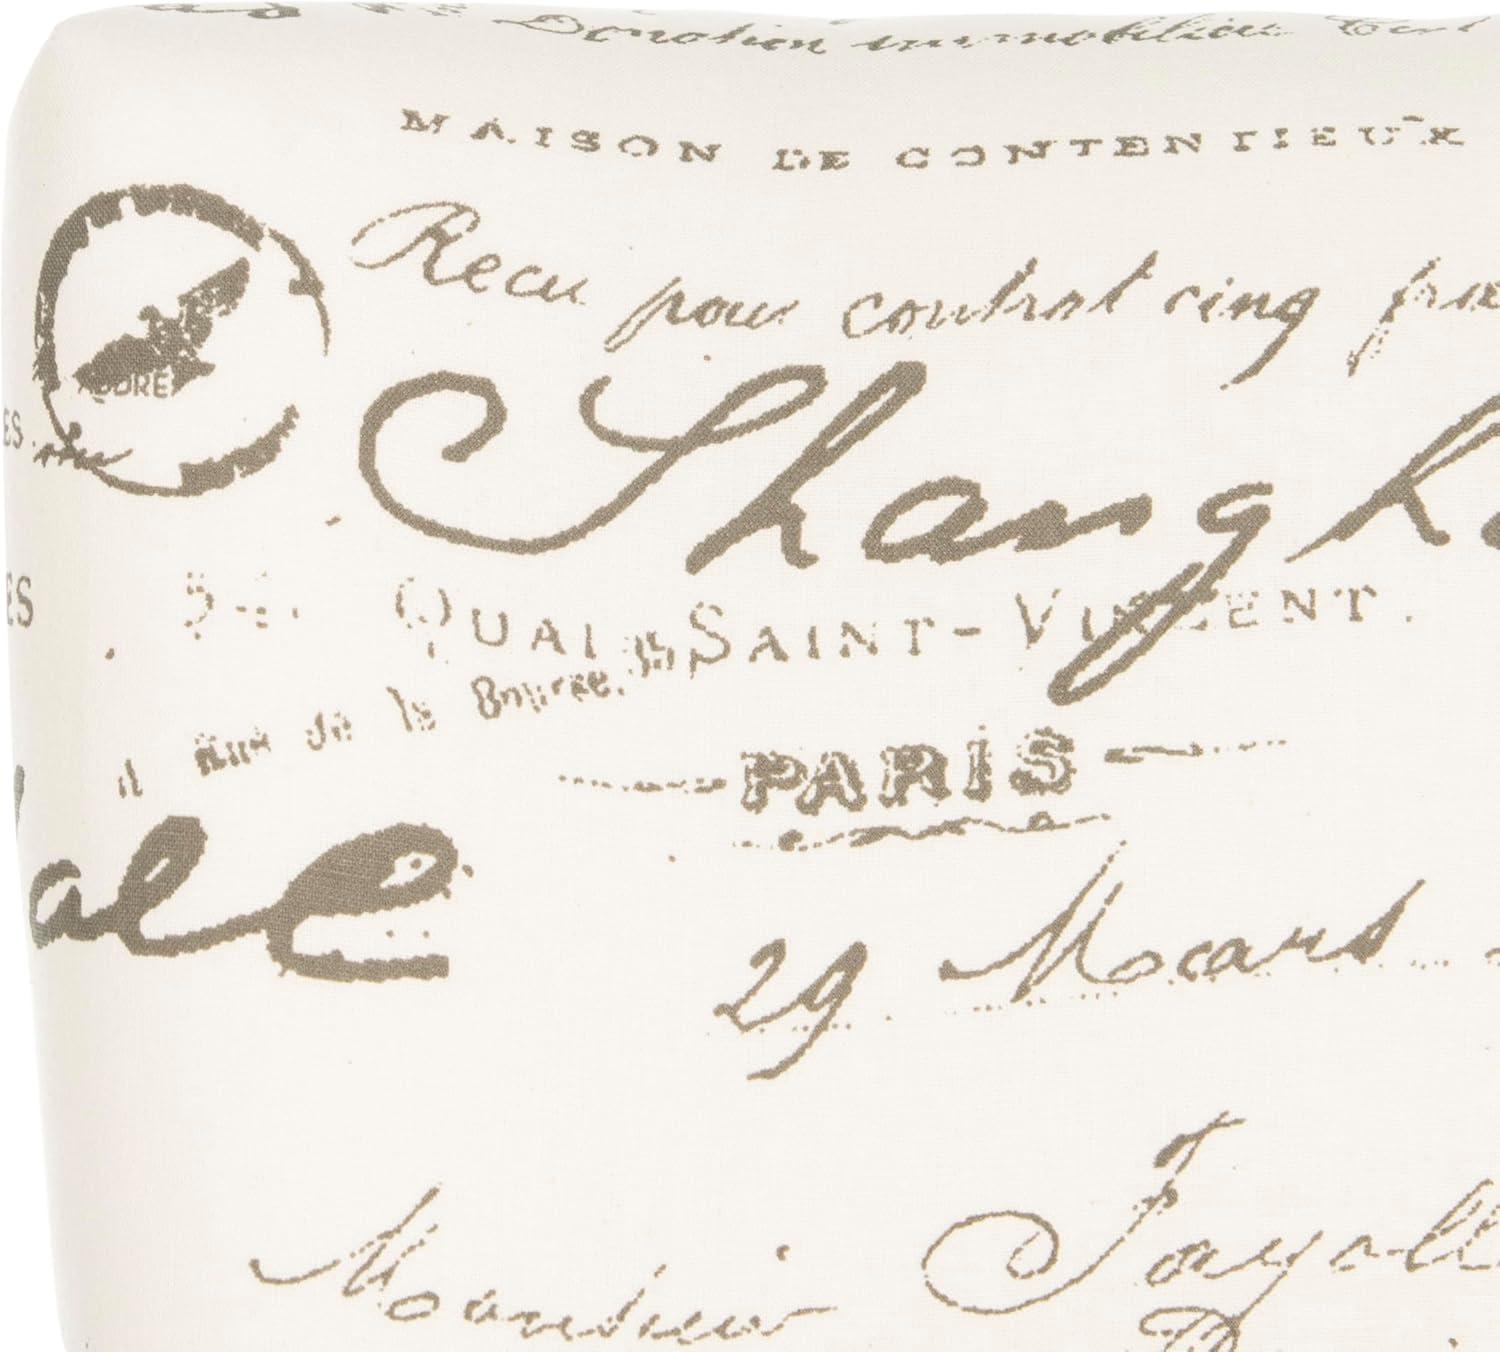 Donation immobilière
MAISON DE CONTENTIEUX
Recu pour control cinq
ADDRE
Shangh
ES
ES
QUAI SAINT-VINCENT.
11 Rue de la Bourse.
PARIS
ale
29 Mars
Monsieur Fayoll